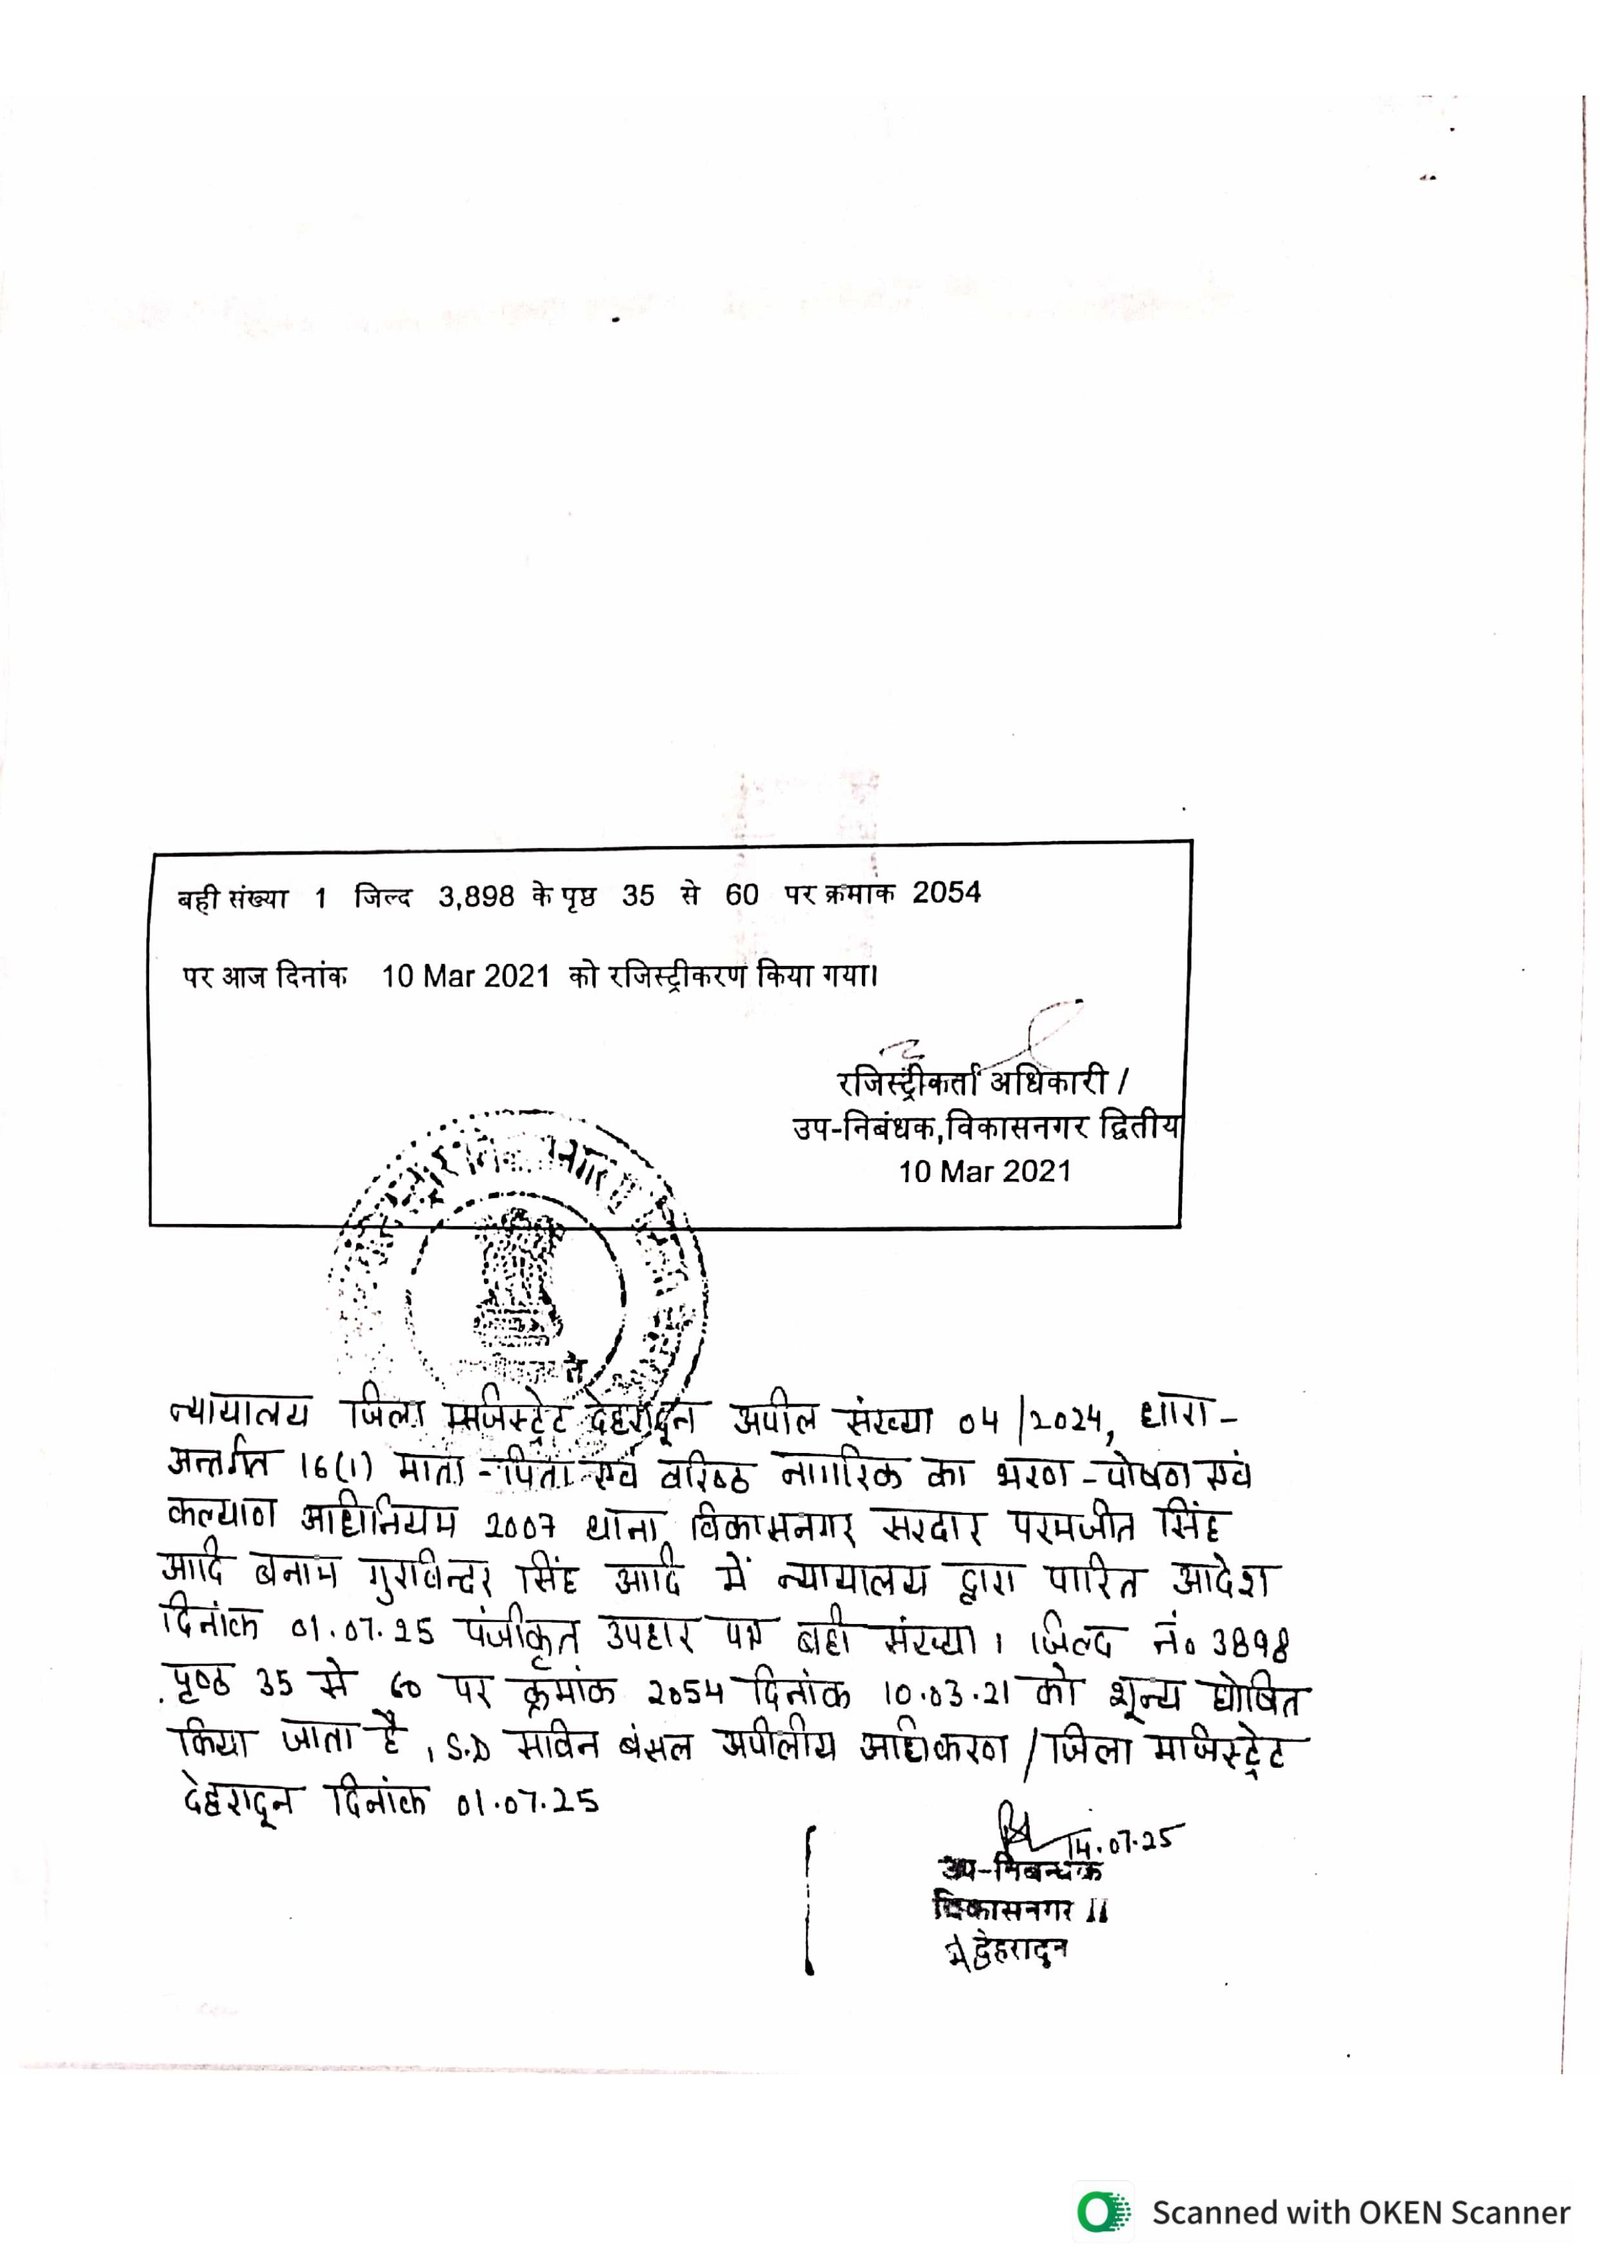 बही संख्या 1 जिल्द 3,898 के पृष्ठ 35 से 60 पर क्रमांक 2054
पर आज दिनांक 10 Mar 2021 को रजिस्ट्रीकरण किया गया।
रजिस्ट्रीकर्ता अधिकारी /
उप-निबंधक,विकासनगर द्वितीय
10 Mar 2021
न्यायालय जिला मजिस्ट्रेट देहरादून अपील संख्या 04/2024, धारा-
अन्तर्गत 16(1) माता-पिता एवं वरिष्ठ नागरिक का भरण-पोषण एवं
कल्याण अधिनियम 2007 थाना विकासनगर सरदार परमजीत सिंह
आदि बनाम गुरविन्दर सिंह आदि में न्यायालय द्वारा पारित आदेश
दिनांक 01.07.25 पंजीकृत उपहार पत्र बही संख्या 1 जिल्द नं० 3898
पृष्ठ 35 से 60 पर क्रमांक 2054 दिनांक 10.03.21 को शून्य घोषित
किया जाता है, S.D सविन बंसल अपीलीय अधिकरण/जिला मजिस्ट्रेट
देहरादून दिनांक 01.07.25
14.07.25
उप-निबन्धक
विकासनगर II
देहरादून
Scanned with OKEN Scanner